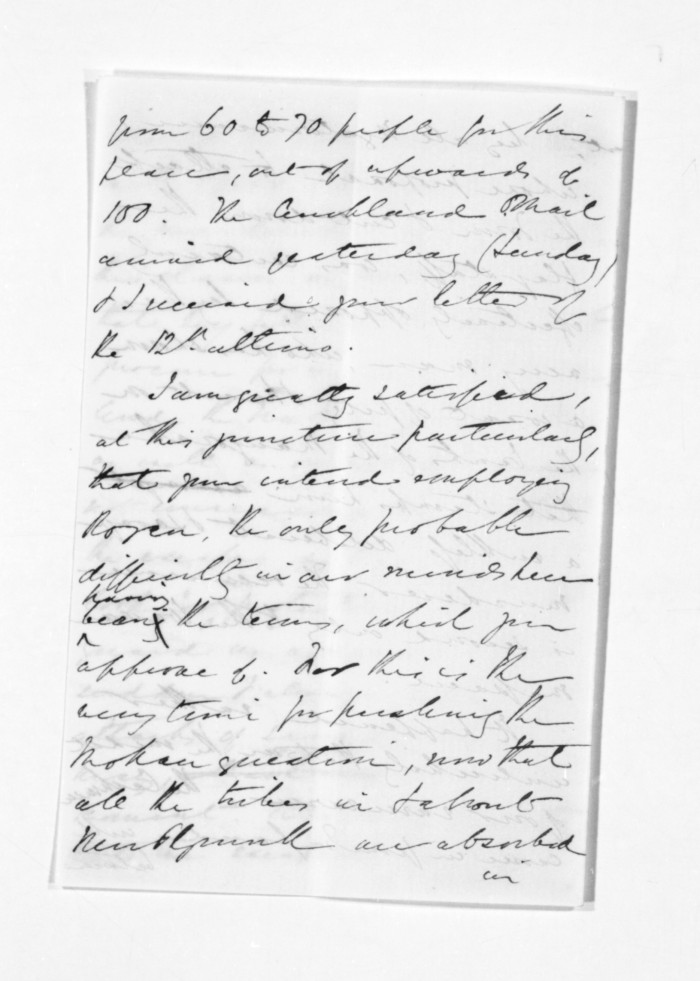 from 60 to 70 people for this
place, out of upwards of
100. The Auckland Mail
arrived yesterday (Sunday)
& I received your letter of
the 12th ultimo.
I am greatly satisfied,
at this juncture particularly,
that you intend employing
Rogan, the only probable
difficulty in our minds here
having
been the terms, which you
approve of. For this is the
very time for pushing the
Mokau question, now that
all the tribes in & about
New Plymouth are absorbed
in